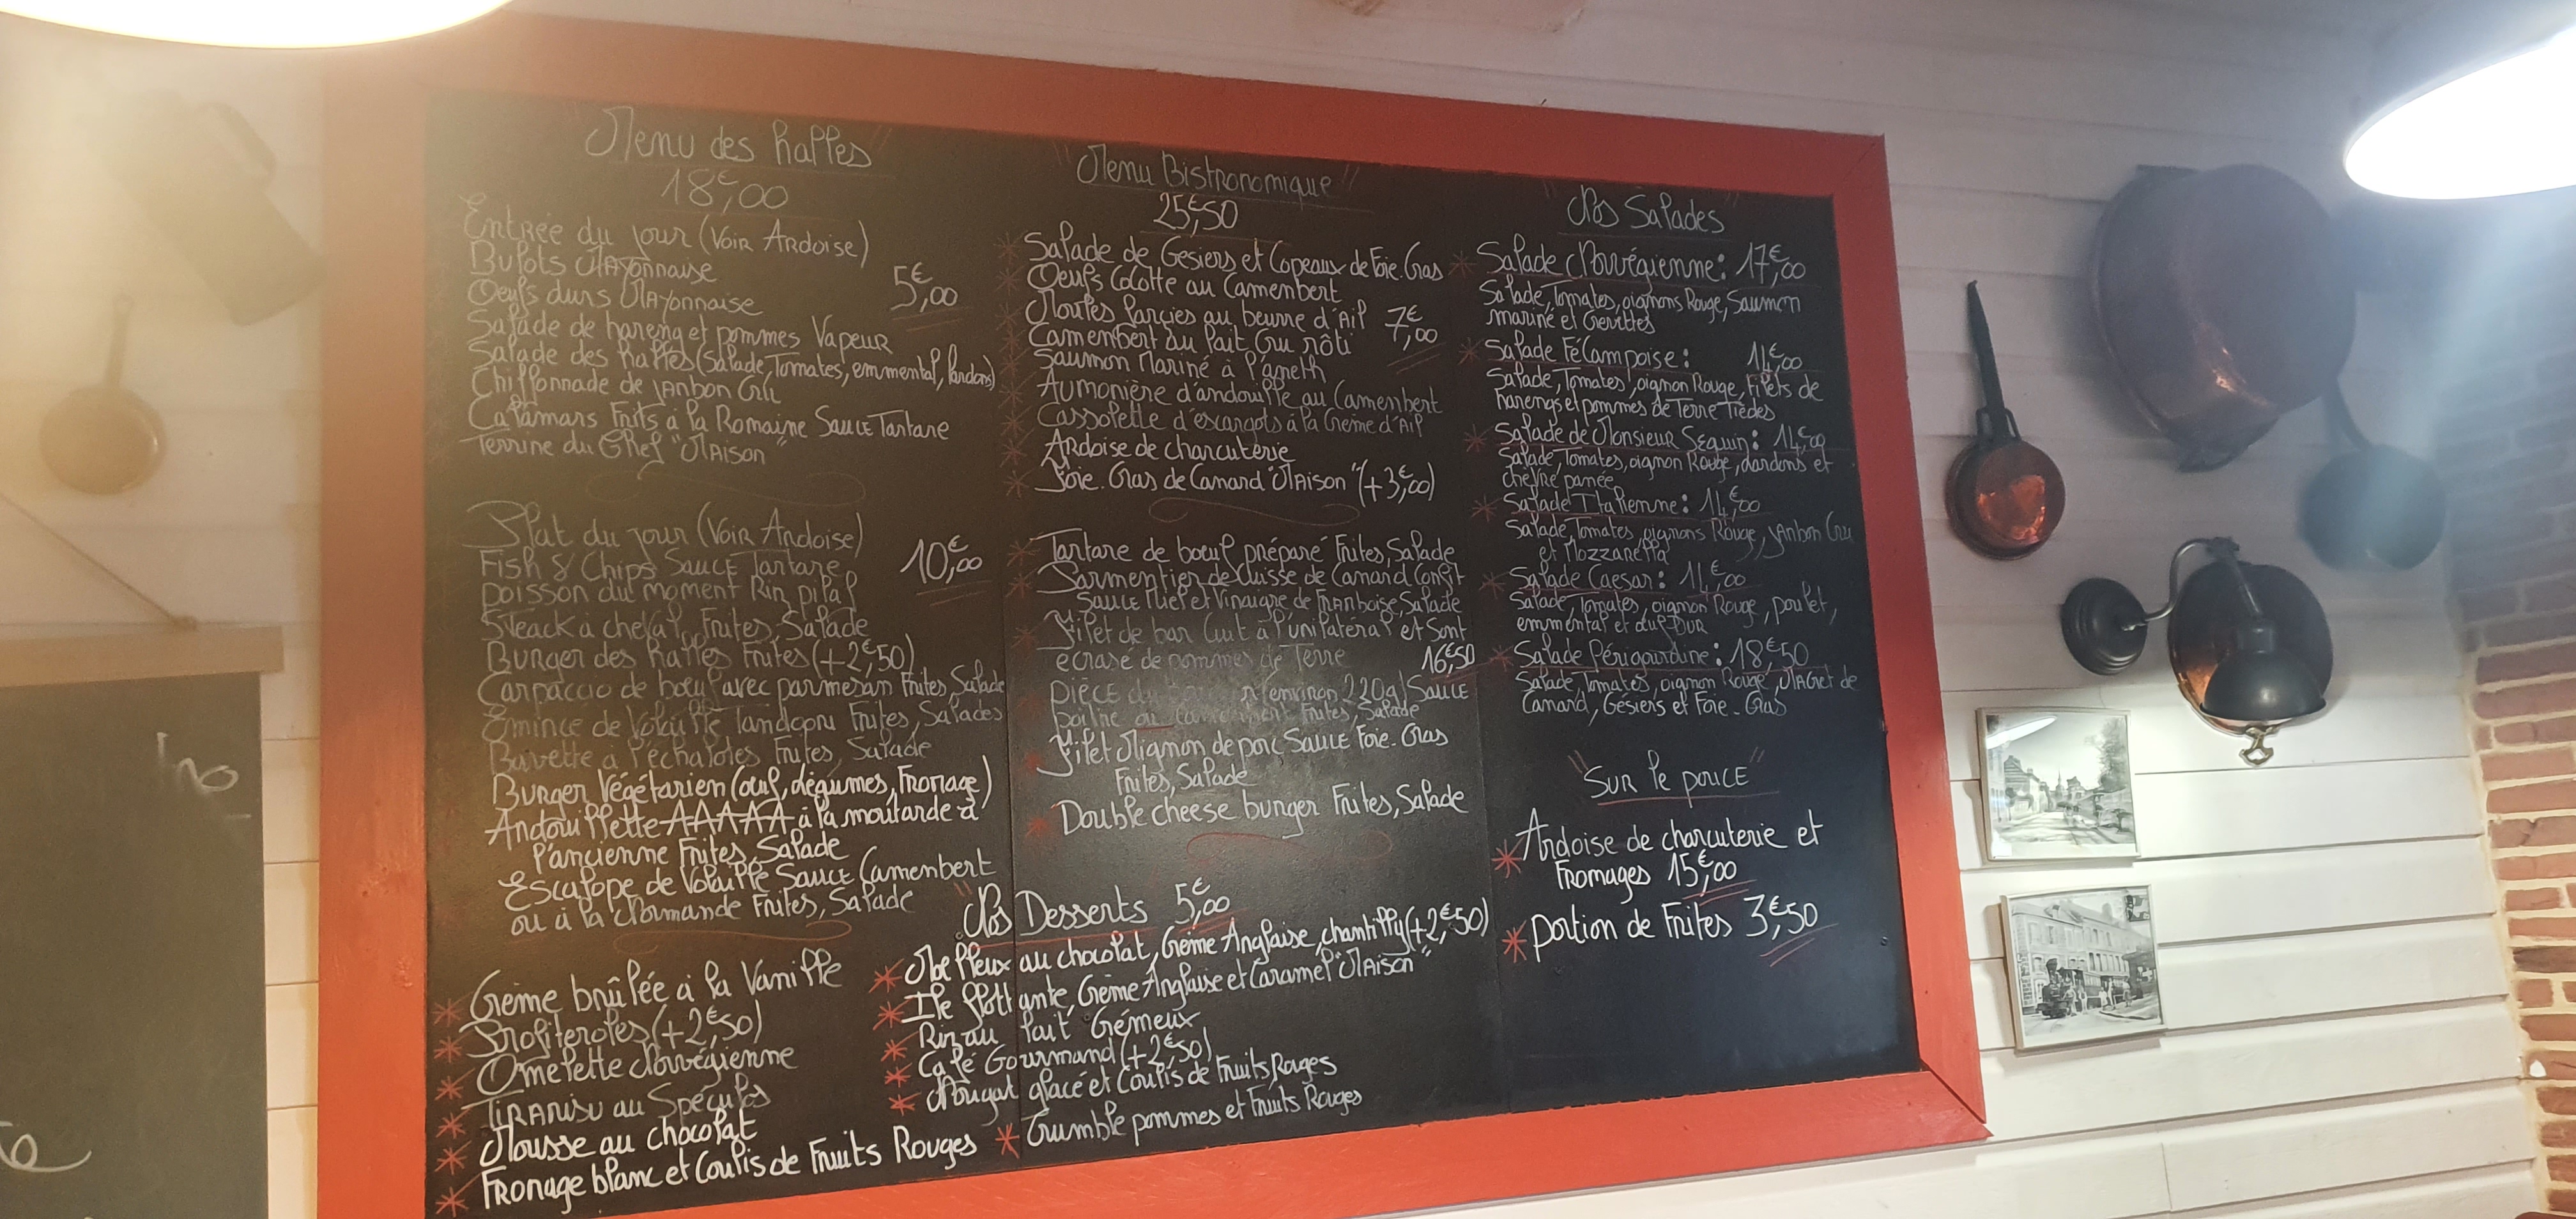 "Menu des halles"
18€,00
Entrée du jour (Voir Ardoise)
Bulots Mayonnaise
Oeufs durs Mayonnaise
5€,00
Salade de hareng et pommes Vapeur
Salade des halles (Salade, Tomates, emmental, lardons)
Chiffonnade de janbon Cru
Calamars Frits à la Romaine Sauce Tartare
Terrine du Chef "Maison"
Plat du jour (Voir Ardoise)
Fish & Chips Sauce Tartare
10,€00
poisson du moment Rin pilaf
Steack à cheval, Frites, Salade
Burger des halles Frites (+2€,50)
Carpaccio de bœuf avec parmesan Frites, Salade
Emince de Volaille Tandoori Frites, Salades
Bavette à l'échalotes Frites, Salade
Burger Végétarien (œuf, légumes, Fromage)
Andouillette AAAAA à la moutarde à
l'ancienne Frites, Salade
Escalope de Volaille Sauce Camembert
ou à la Normande Frites, Salade
* Crème brûlée à la Vanille
* Profiteroles (+2€,50)
* Omelette Norvégienne
* Tiramisu au Spéculos
* Mousse au chocolat
* Fromage blanc et Coulis de Fruits Rouges
"Menu Bistronomique"
25€,50
* Salade de Gesiers et Copeaux de Foie-Gras
* Oeufs Cocotte au Camembert
* Moules farcies au beurre d'Ail
7€,00
* Camembert au lait Cru rôti
* Saumon Mariné à l'aneth
* Aumonière d'andouille au Camenbert
* Cassolette d'escargots à la Crème d'Ail
* Ardoise de charcuterie
* Foie-Gras de Canard "Maison" (+3,€00)
* Tartare de bœuf préparé Frites, Salade
* Parmentier de Cuisse de Canard Confit
Sauce Miel et Vinaigre de Framboise, Salade
* Filet de bar Cuit à l'unilatéral et Sont
écrasé de pommes de Terre
16€,50
* pièce du (environ 220g) Sauce
poivre ou Camembert Frites, Salade
* Filet Mignon de porc Sauce Foie-Gras
Frites, Salade
* Double cheese burger Frites, Salade
"Nos Desserts 5€,00
* Moelleux au chocolat, Crème Anglaise, chantilly (+2€,50)
* Ile flottante, Crème Anglaise et Caramel "Maison"
* Rin au lait Crémeux
* Café Gourmand (+2€,50)
* Nougat glacé et Coulis de Fruits Rouges
* Crumble pommes et Fruits Rouges
"Nos Salades"
* Salade Norvégienne: 17€,00
Salade, Tomates, oignons Rouge, Saumon
mariné et Crevettes
* Salade Fécampoise: 14,€00
Salade, Tomates, oignon Rouge, Filets de
harengs et pommes de Terre Tièdes
* Salade de Monsieur Seguin: 14,€00
Salade, Tomates, oignon Rouge, Lardons et
chèvre panée
* Salade Italienne: 14,€00
Salade, Tomates, oignons Rouge, janbon Cru
et Mozzarella
* Salade Caesar: 14,€00
Salade, Tomates, oignon Rouge, poulet,
emmental et œuf Dur
* Salade Périgourdine: 18€,50
Salade, Tomates, oignon Rouge, Magret de
Canard, Gésiers et Foie-Gras
"Sur le pouce"
* Ardoise de charcuterie et
Fromages 15,€00
* portion de Frites 3€,50